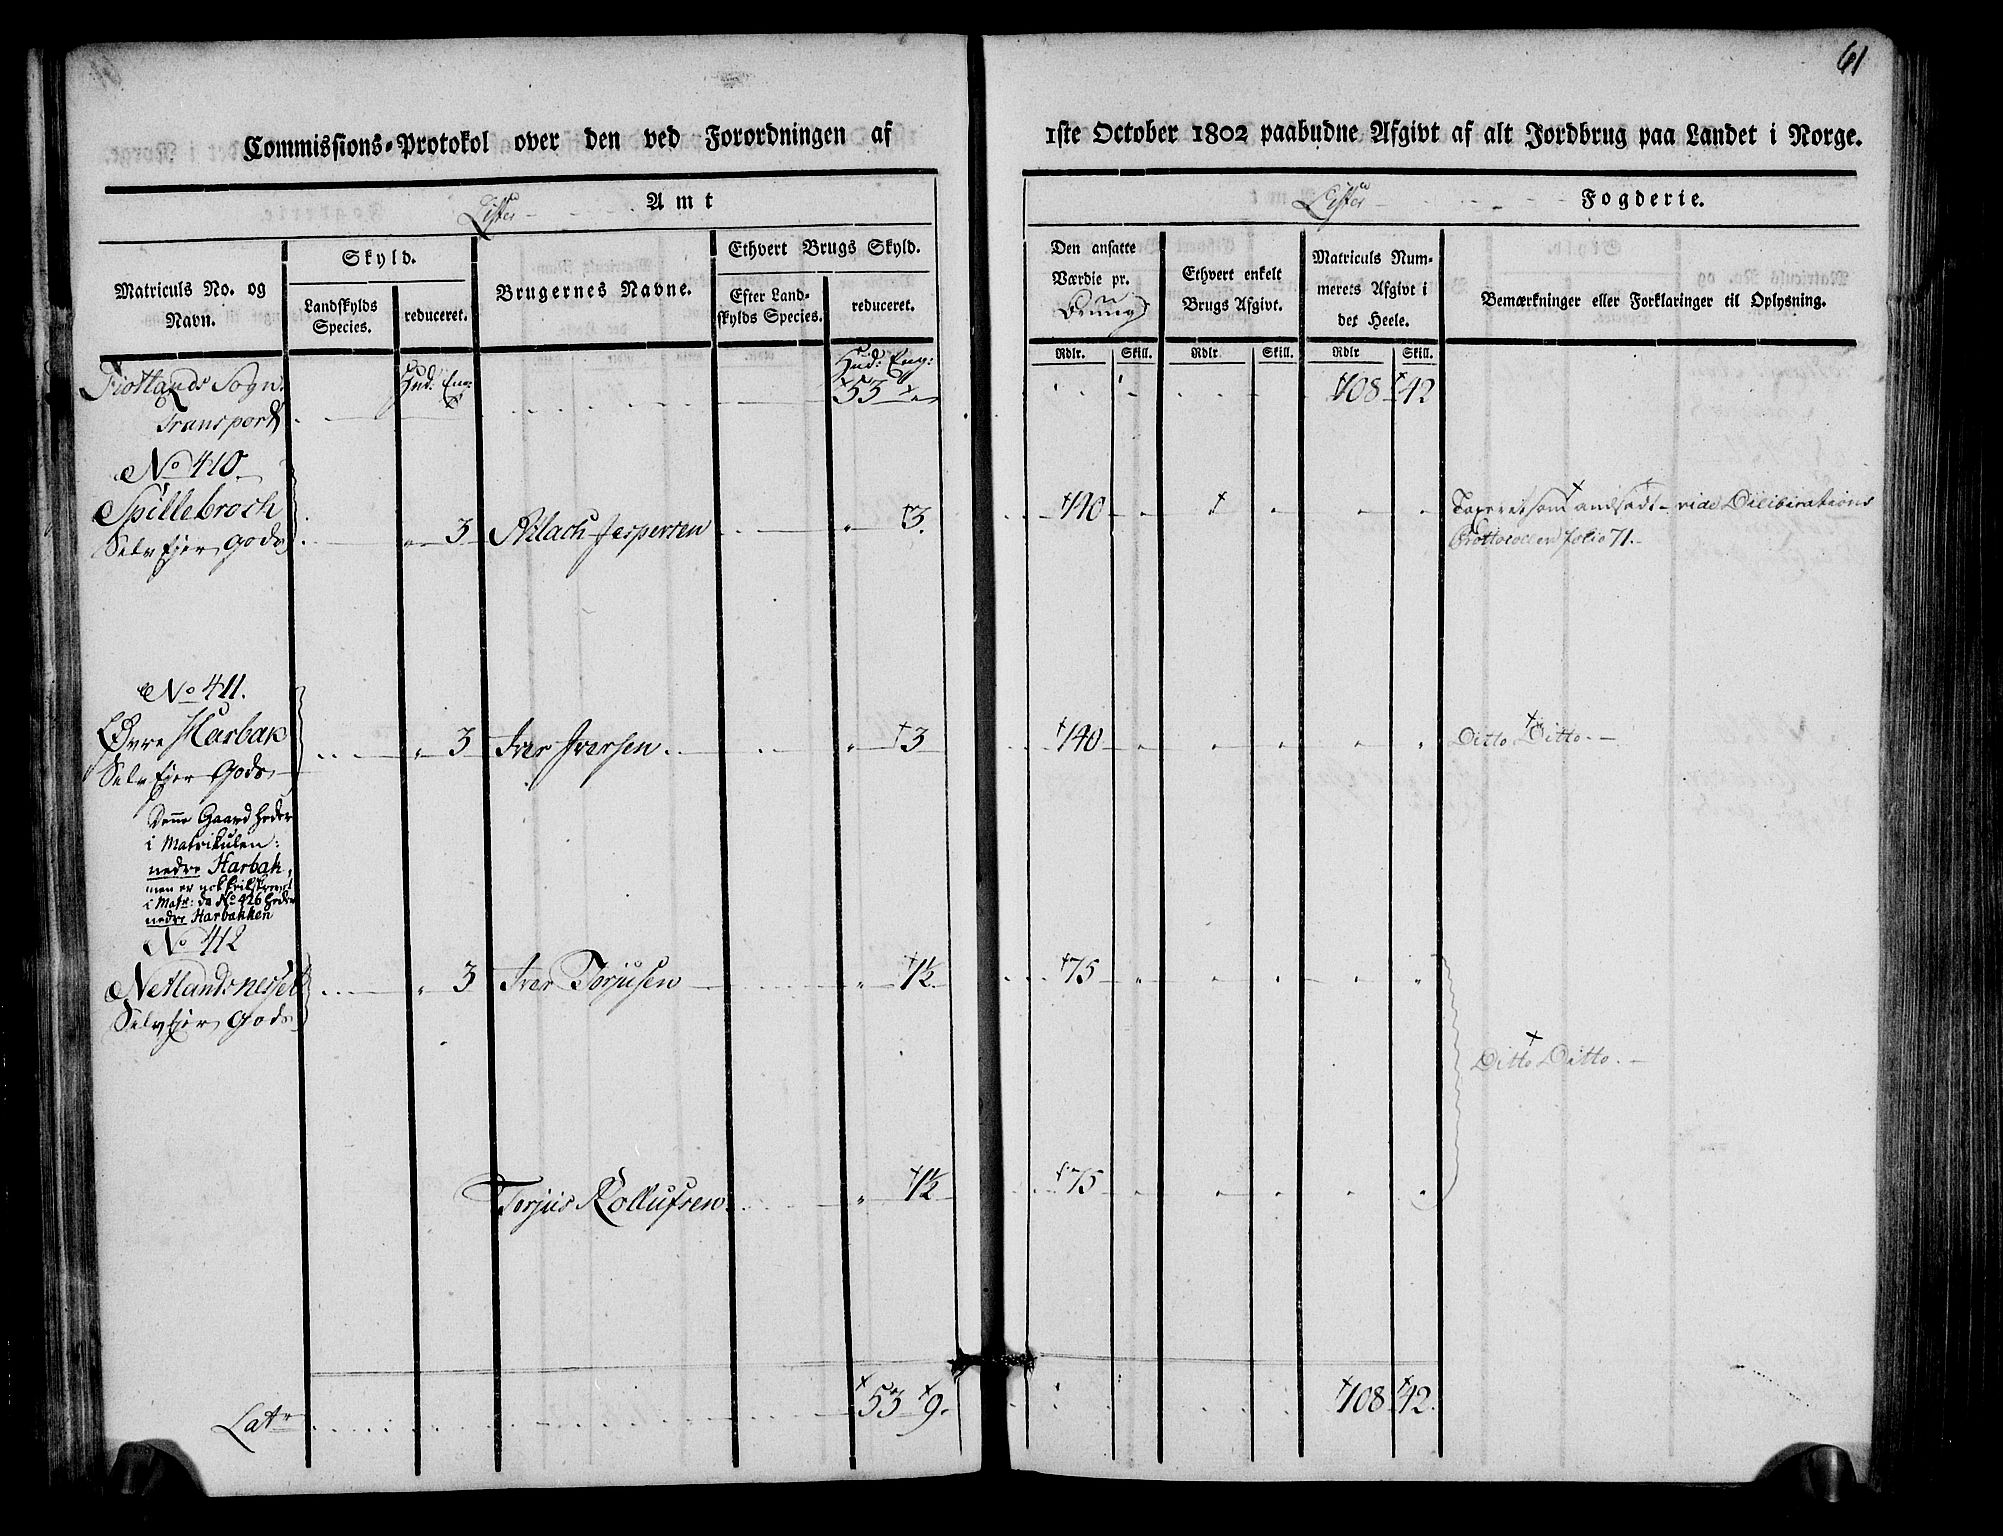 61
Commissions-Protokol over den ved Forordningen af 1ste October 1802 paabudne Afgivt af alt Jordbrug paa Landet i Norge.
Lister Amt
Lister Fogderie.
Matriculs No. og Navn.
Skyld.
Landskylds Species.
reduceret.
Brugernes Navne.
Ethvert Brugs Skyld.
Efter Landskylds Species.
reduceret.
Den ansatte Værdie pr.
Ethvert enkelt Brugs Afgivt.
Matriculs Nummerets Afgivt i det Heele.
Bemærkninger eller Forklaringer til Oplysning.
Rdlr. Skill. Rdlr Skill. Rdlr Skill.
Fiotlands Sogn Hud: Eng: Hud: Eng:
Transport 53 108 42
No 410
Spillebroch
Selv Ejer Gods " 3 Atlach Jespersen " 3 140 " " " " "
Taxeret som andsadt - vide Deliberations
Prottocollen folio 71.
No 411.
Øvre Harbak " 3 Iver Iversen " 3 140 " " " " " Ditto Ditto.
Selv Ejer Gods
Denne Gaard heder
i Matrikulen:
nedre Harbak,
men er nok
i Matr: da No 426 heder
nedre Harbakken
No 412
Netlandsnesset " 3 Iver Torjusen " 1½ 75 " " " " "
Selv Ejer Gods
Ditto Ditto.
Torjus Rollufsen " 1½ 75 " " " " "
Latr 53 9. 108 42.